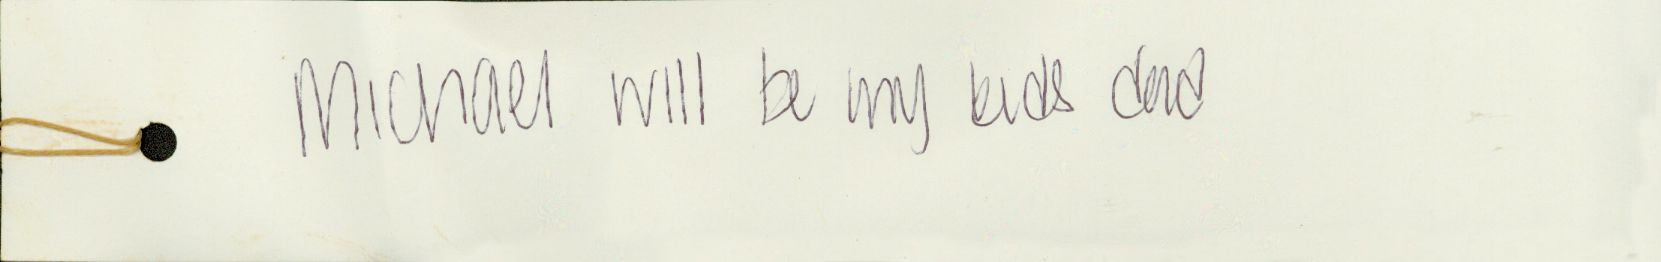 Michael will be my kids dad